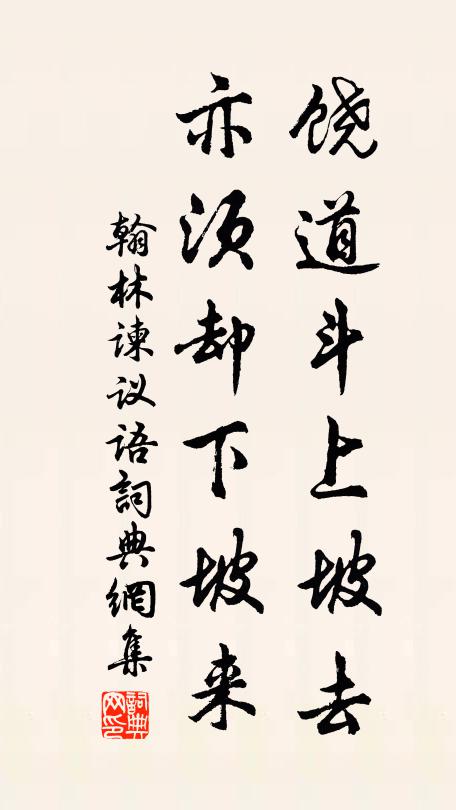 饶道斗上坡去
亦须却下坡来
翰林谏议语詞典網集
詞典网印